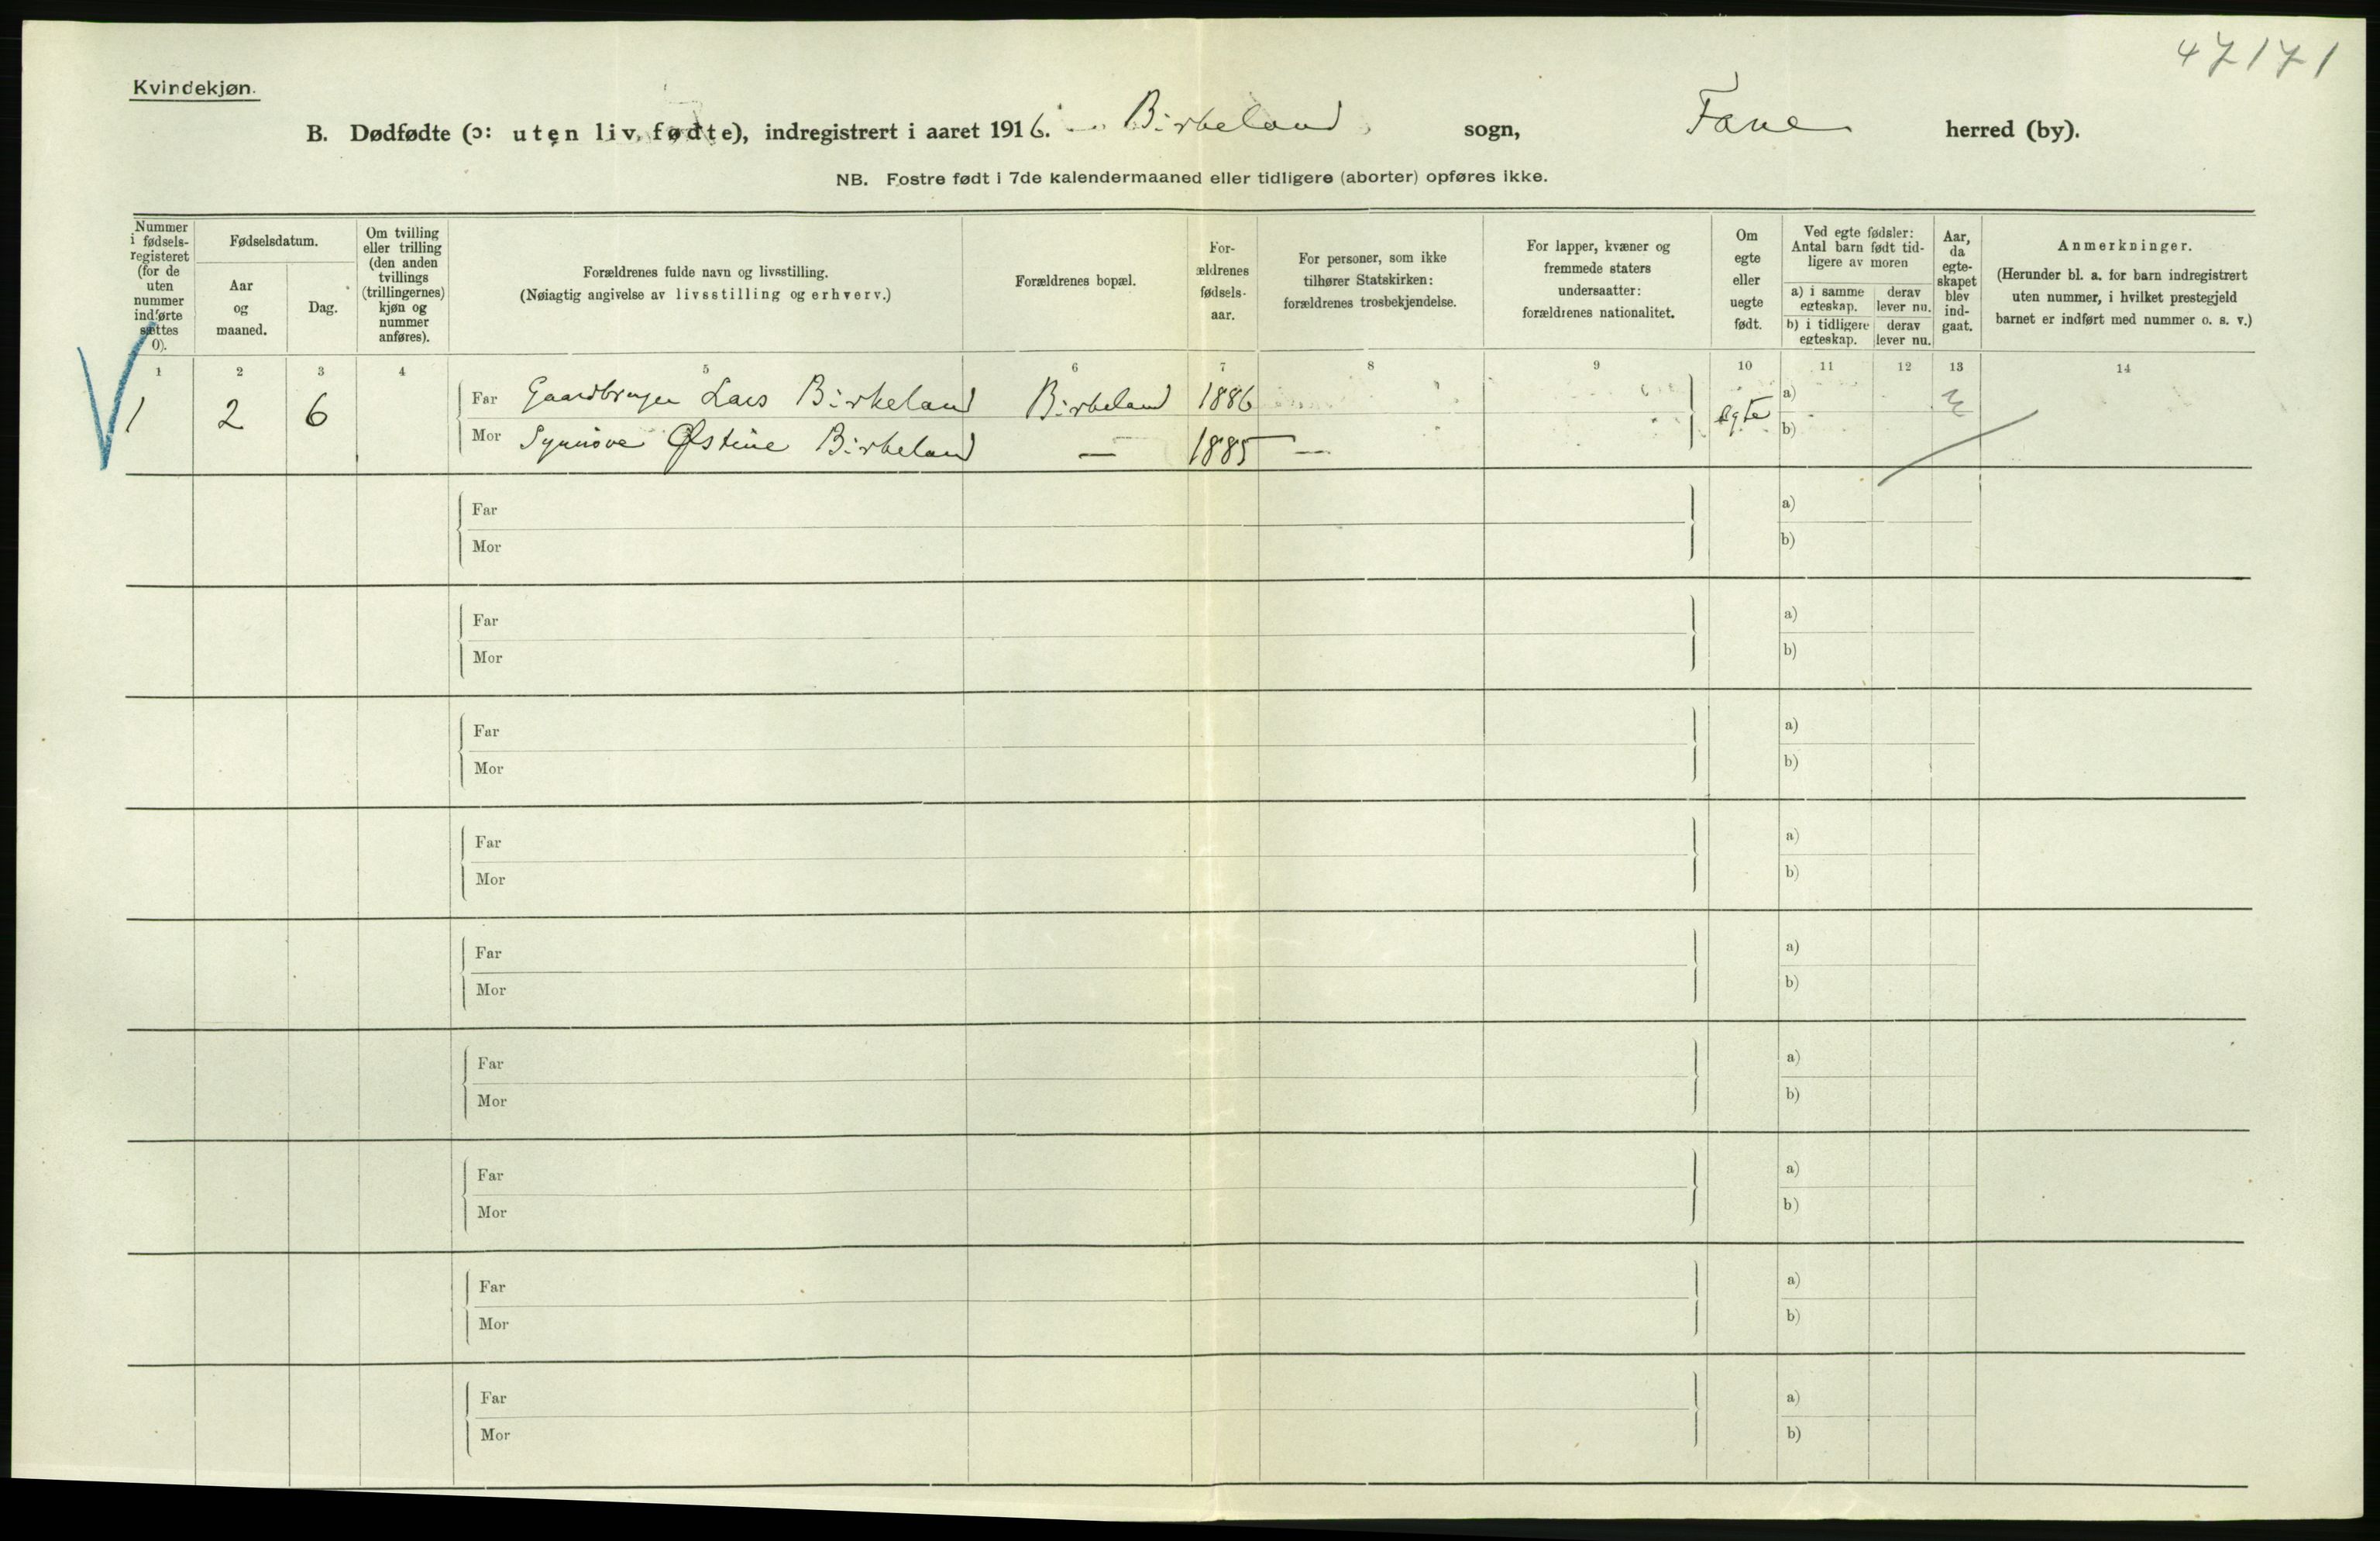 47171
Kvindekjøn.
B. Dødfødte (ɔ: uten liv fødte), indregistrert i aaret 1916. Birkeland sogn, Fane herred (by).
NB. Fostre født i 7de kalendermaaned eller tidligere (aborter) opføres ikke.
Nummer i fødsels-registeret (for de uten nummer indførte sættes 0).
Fødselsdatum.
Aar og maaned.
Dag.
Om tvilling eller trilling (den anden tvillings (trillingernes) kjøn og nummer anføres).
Forældrenes fulde navn og livsstilling.
(Nøiagtig angivelse av livsstilling og erhverv.)
Forældrenes bopæl.
For-ældrenes fødsels-aar.
For personer, som ikke tilhører Statskirken: forældrenes trosbekjendelse.
For lapper, kvæner og fremmede staters undersaatter: forældrenes nationalitet.
Om egte eller uegte født.
Ved egte fødsler: Antal barn født tid-ligere av moren
a) i samme egteskap.
derav lever nu.
b) i tidligere egteskap.
derav lever nu.
Aar, da egte-skapet blev ind-gaat.
Anmerkninger.
(Herunder bl. a. for barn indregistrert uten nummer, i hvilket prestegjeld barnet er indført med nummer o. s. v.)
1 2 3 4 5 6 7 8 9 10 11 12 13 14
1 2 6 Far Gaardbruger Lars Birkeland Birkeland 1886 egte a)
Mor Synnøve Østine Birkeland — 1885 — b)
Far a)
Mor b)
Far a)
Mor b)
Far a)
Mor b)
Far a)
Mor b)
Far a)
Mor b)
Far a)
Mor b)
Far a)
Mor b)
Far a)
Mor b)
Far a)
Mor b)